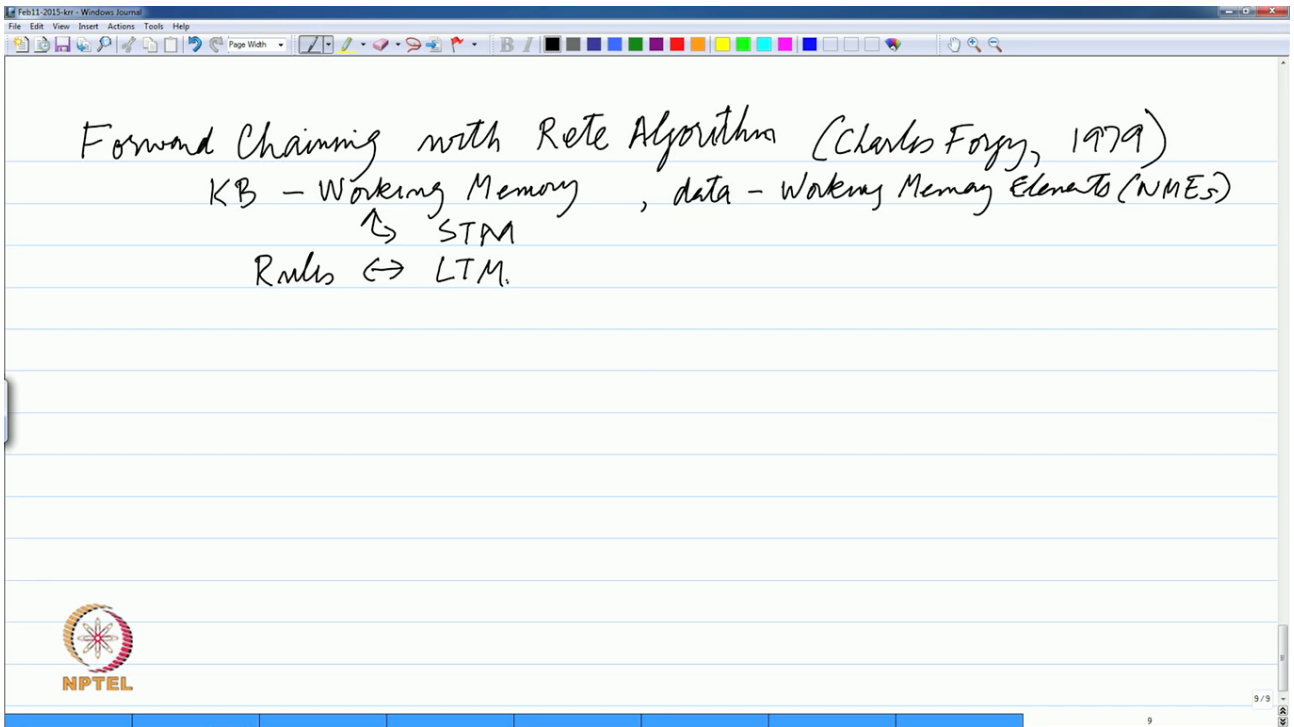 Feb11-2015-krr - Windows Journal
File Edit View Insert Actions Tools Help
Page Width
Forward Chaining with Rete Algorithm (Charles Forgy, 1979)
KB - Working Memory , data - Working Memory Elements (WMEs)
STM
Rules ↔ LTM.
NPTEL
9/9
9